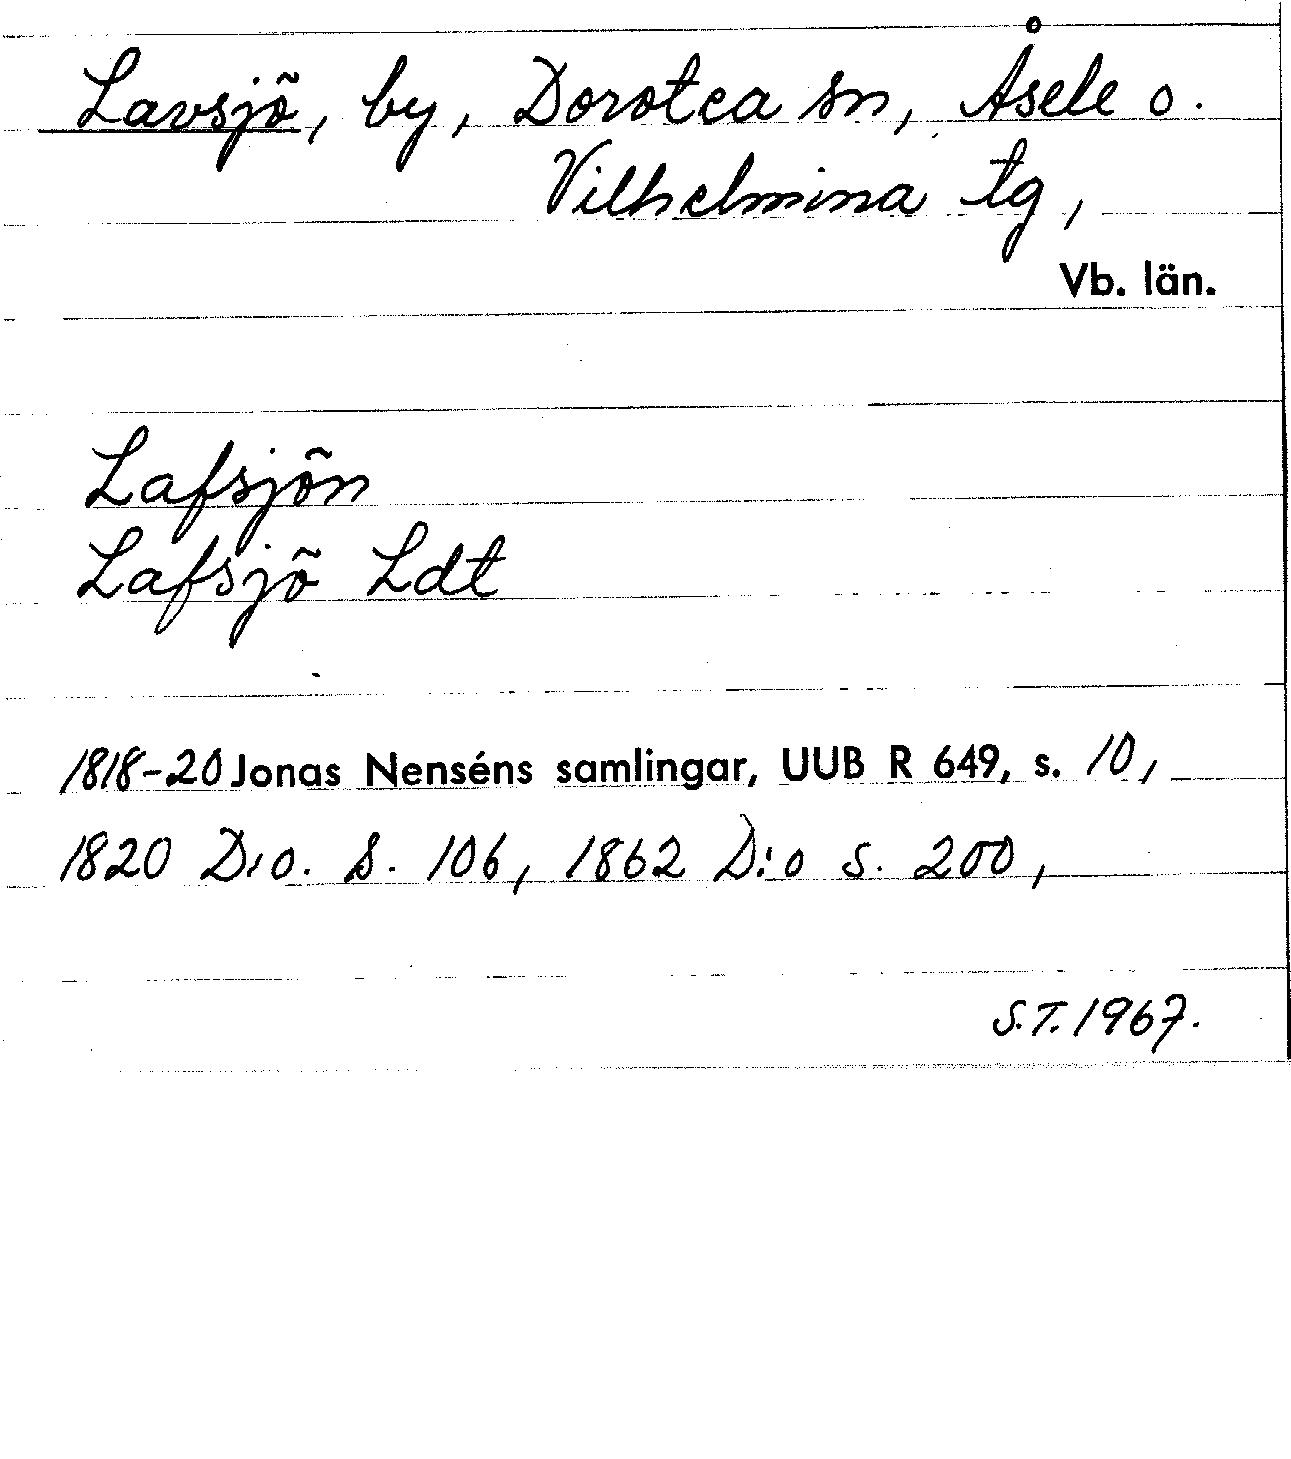 Lavsjö, by, Dorotea sn, Åsele o.
Vilhelmina tg,
Vb. län.
Lafsjön
Lafsjö Ldt
1818-20 Jonas Nenséns samlingar, UUB R 649, s. 10,
1820 D:o. S. 106, 1862 D:o s. 200,
S.T. 1967.